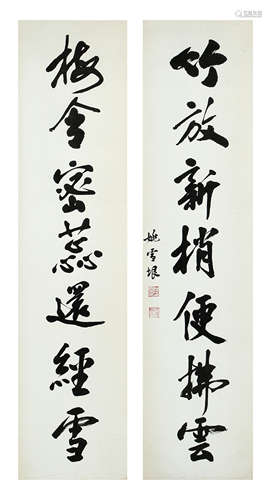 竹放新梢便拂雲
梅含密蕊還經雪
姚雪垠